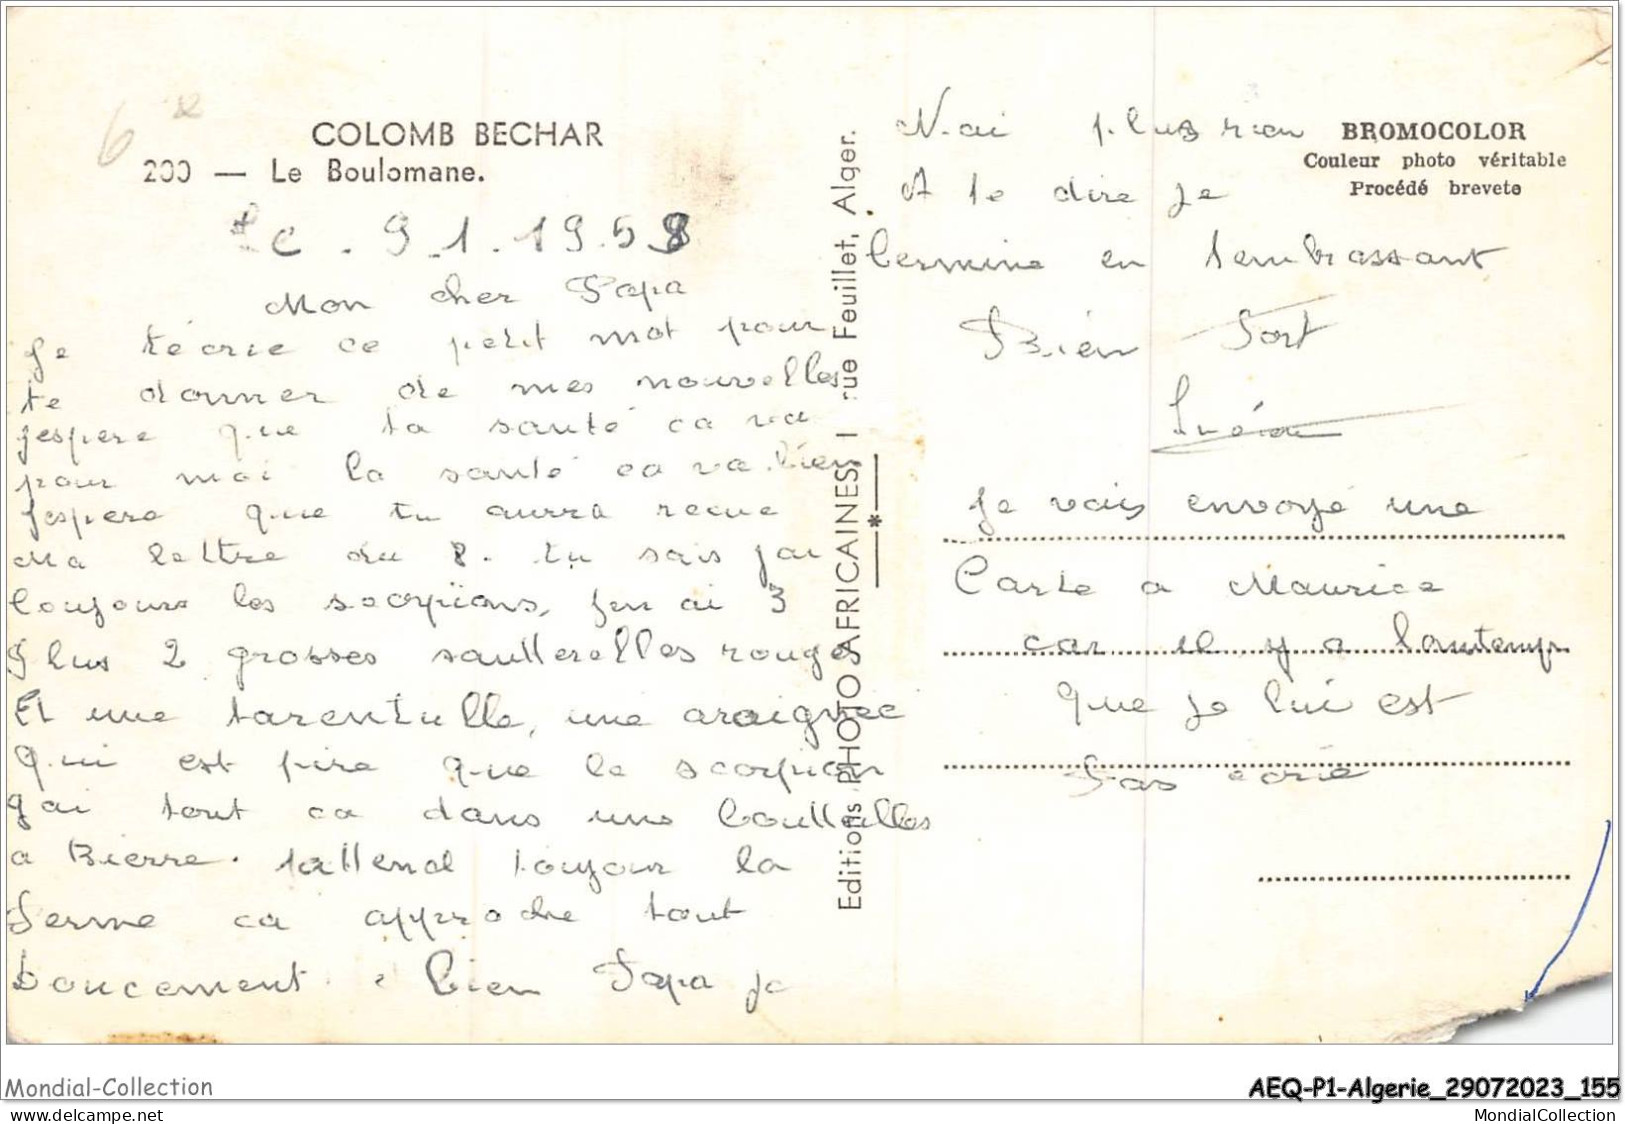 COLOMB BECHAR
200 — Le Boulomane.
Le . 9.1.1958
Mon cher Papa
Je técrie ce petit mot pour
te donner de mes nouvelles
jespere que ta santé ca va
pour moi la santé ca va bien
jespere que tu aurra recue
Ma lettre du 8. tu sais jai
toujours les scorpions, jen ai 3
Plus 2 grosses sautterelles rouges
Et une tarentulle, une araignee
Qui est pire que le scorpion
Jai tout ca dans une boutteilles
a Bierre. jattend toujour la
Perme ca approche tout
Doucement. bien Papa je
Editions PHOTO AFRICAINES 1 rue Feuillet, Alger.
*
BROMOCOLOR
Couleur photo véritable
Procédé brevete
N'ai plus rien
A te dire je
termine en tembrassant
Bien Fort
Je vais envoyé une
Carte a Maurice
car il y a lontemps
Que je lui est
Pas écrie
6
Mondial-Collection
AEQ-P1-Algerie_29072023_155
www.delcampe.net
MondialCollection